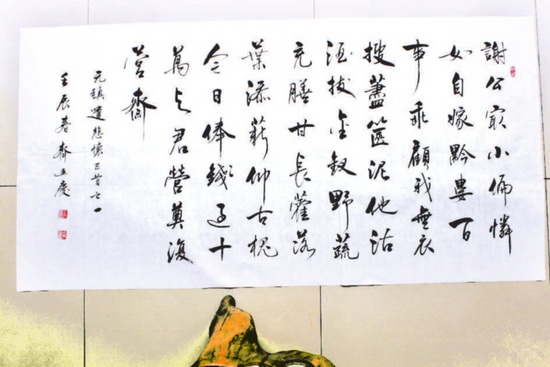 謝公最小偏憐
女自嫁黔婁百
事乖顧我無衣
搜藎篋泥他沽
酒拔金釵野蔬
充膳甘長藿落
葉添薪仰古槐
今日俸錢過十
萬与君營奠復
營齋
元稹遣悲懷三首之一
壬辰春